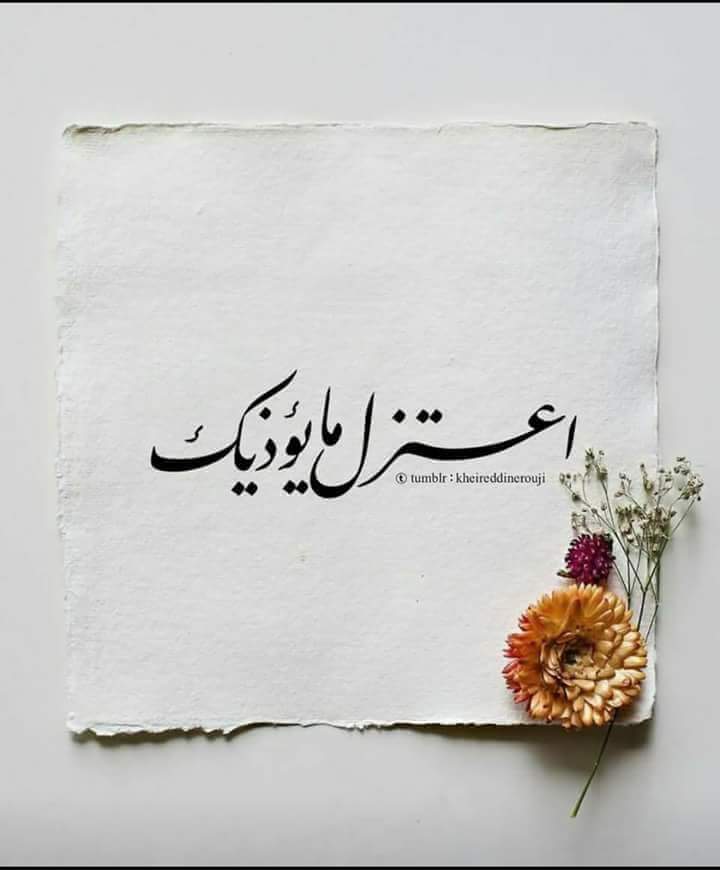 اعتزل ما يؤذيك
ⓣ tumblr : kheireddinerouji